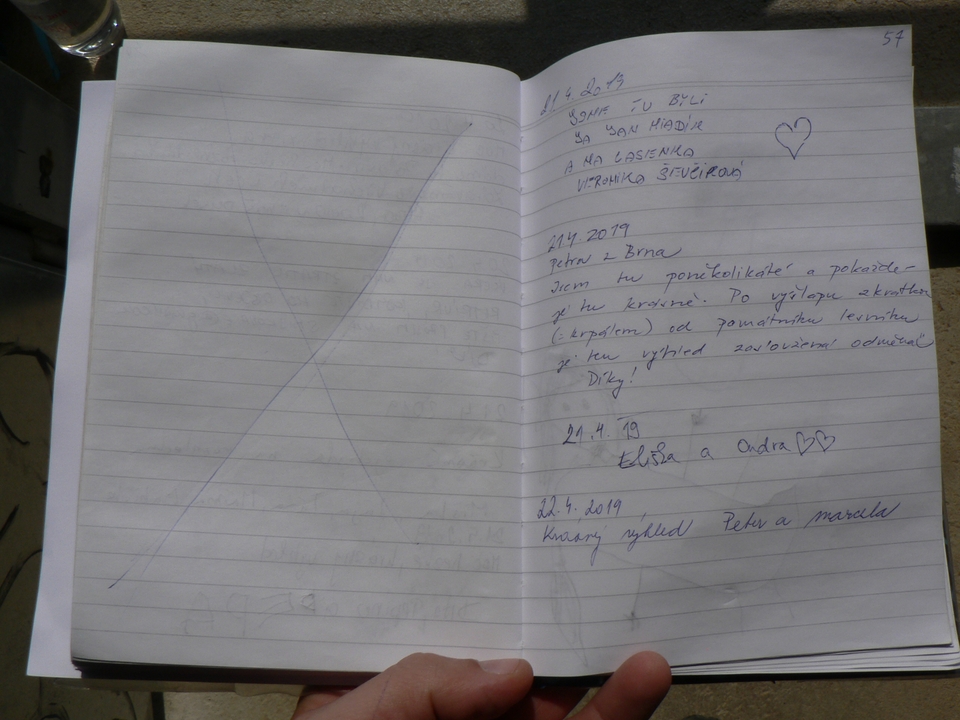 57
21.4.2019
JSME TU BYLI
JA JAN HLADÍK
A MA LASENKA
VERONIKA ŠEVČÍKOVÁ
21.4.2019
Petra z Brna
Jsem tu poněkolikáté a pokaždé
je tu krásně. Po výšlapu zkratkou
(= krpálem) od pomátníku lesníku
je ten výhled zasloužená odměna!
Díky!
21.4.19
Eliška a Ondra
22.4.2019
Krásný výhled Peter a marcela